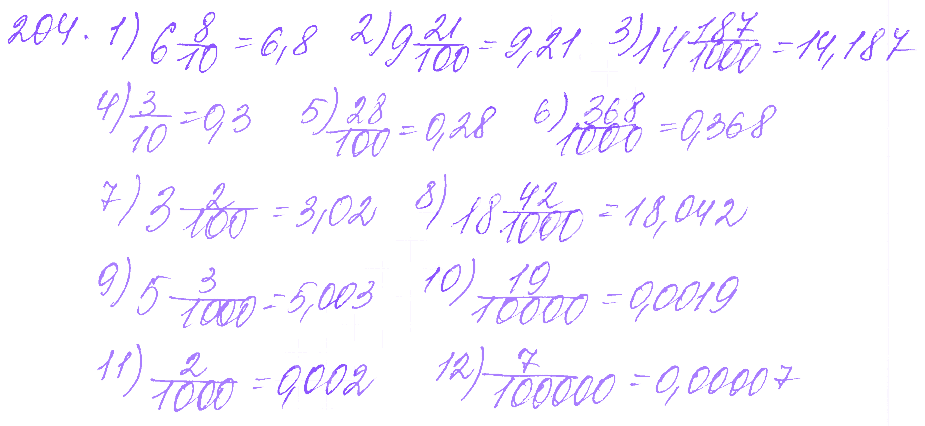 204. 1) 6 8/10 = 6,8 2) 9 21/100 = 9,21 3) 14 187/1000 = 14,187
4) 3/10 = 0,3 5) 28/100 = 0,28 6) 368/1000 = 0,368
7) 3 2/100 = 3,02 8) 18 42/1000 = 18,042
9) 5 3/1000 = 5,003 10) 19/10000 = 0,0019
11) 2/1000 = 0,002 12) 7/100000 = 0,00007